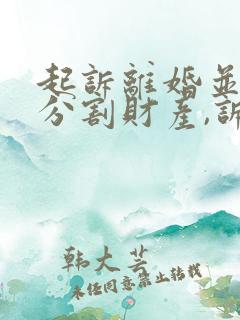 起訴離婚並
分割財産,訴
韩大芸
未经同意禁止转载